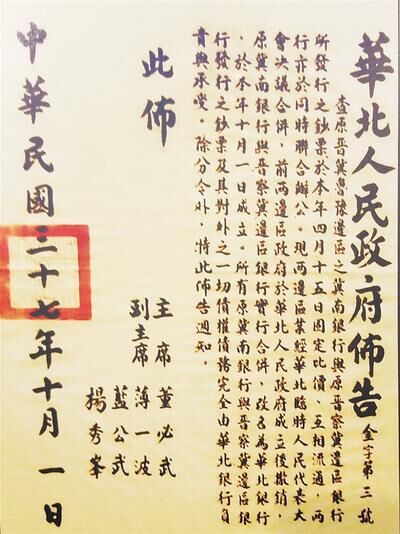 華北人民政府佈告 金字第三號
查原晉冀魯豫邊區之冀南銀行與原晉察冀邊區銀行
所發行之鈔票於本年四月十五日固定比價，互相流通，兩
行亦於同時聯合辦公。現兩邊區業經華北臨時人民代表大
會決議合併，前兩邊區政府於華北人民政府成立後撤銷，
原冀南銀行與晉察冀邊區銀行實行合併，改名為華北銀行
，於本年十月一日成立。所有原冀南銀行與晉察冀邊區銀
行發行之鈔票及其對外之一切債權債務完全由華北銀行負
責與承受。除分令外，特此佈告週知。
此佈
主席 董必武
副主席 薄一波
藍公武
楊秀峯
中華民國三十七年十月一日